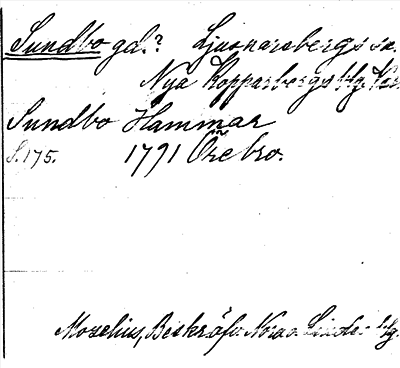 Sundbo gd.? Ljusnarsbergs sn.
Nya Kopparbergs hg.
Sundbo Hammar
S. 175. 1791 Örebro.
Mozelius, Beskräfv. Nora o. Lindes hg.